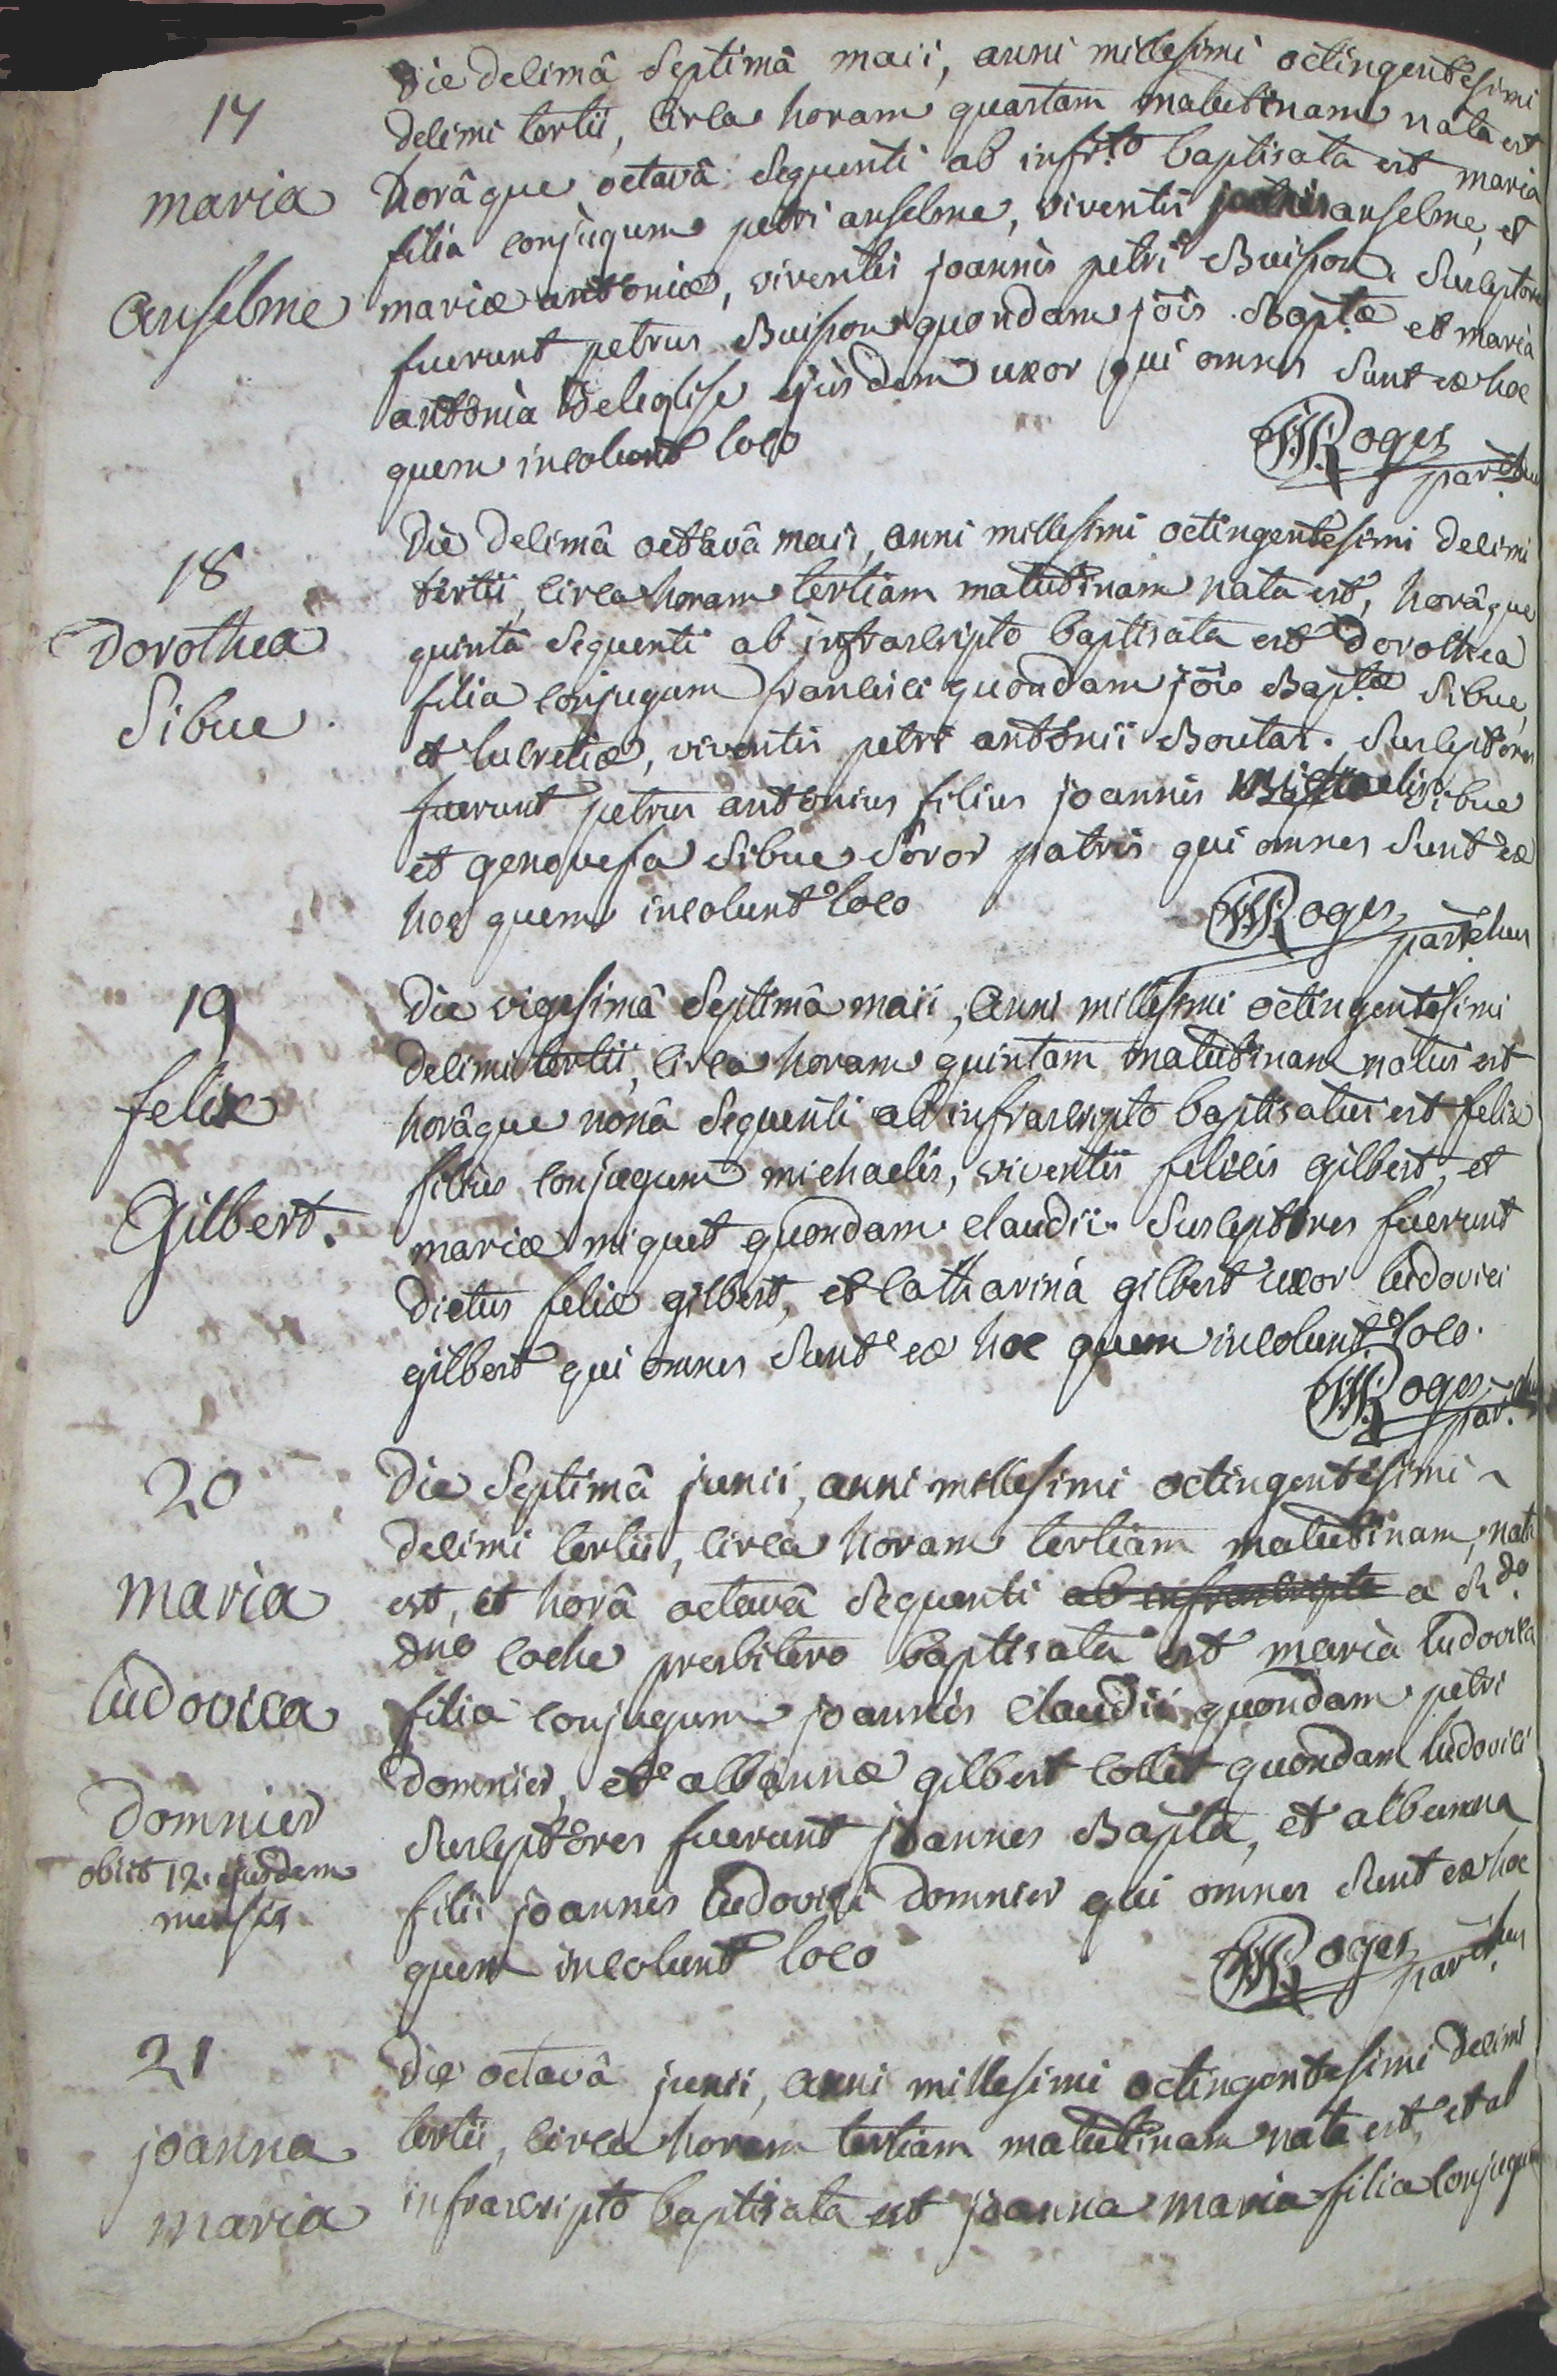 17
maria
Anselme
Die decimâ septimâ maii, anni millesimi octingentesimi
decimi tertii, circa horam quartam matutinam nata est
horâque octavâ sequenti ab infr.to baptisata est maria
filia conjugum petri anselme, viventis anselme, et
mariæ antoniæ, viventis joannis petri Buisson. Susceptores
fuerunt petrus Buisson quondam jõis Baptæ et maria
antonia Deleglise ejusdem uxor qui omnes sunt ex hoc
quem incolunt loco
Roges
par.chus
18
Dorothea
Sibue.
Die decimâ octavâ maii, anni millesimi octingentesimi decimi
tertii, circa horam tertiam matutinam nata est, horâque
quintâ sequenti ab infrascripto baptisata est Dorothea
filia conjugum francisci quondam jõis Baptæ Sibue,
et lucretiæ, viventis petri antonii Boutaz. Susceptores
fuerunt petrus antonius filius joannis Michaelis Sibue
et genovefa Sibue soror patris qui omnes sunt ex
hoc quem incolunt loco
Roges
par.chus
19
felix
Gilbert.
Die vigesimâ septimâ maii, anni millesimi octingentesimi
decimi tertii, circa horam quintam matutinam natus est
horâque nonâ sequenti ab infrascripto baptisatus est felix
filius conjugum michaelis, viventis felicis gilbert, et
mariæ miquet quondam claudii. Susceptores fuerunt
dictus felix gilbert, et catharina gilbert uxor ludovici
gilbert qui omnes sunt ex hoc quem incolunt loco.
Roges
par.chus
20
maria
ludovica
Domnier
obiit 12. ejusdem
mensis
Die septimâ junii, anni millesimi octingentesimi
decimi tertii, circa horam tertiam matutinam, nata
est, et horâ octavâ sequenti ab infrascripto a R.do
dno coche presbitero baptisata est maria ludovica
filia conjugum joannis claudii quondam petri
domnier, et albannæ gilbert collet quondam ludovici
Susceptores fuerunt joannes Bapta, et albanna
filii joannis ludovici domnier qui omnes sunt ex hoc
quem incolunt loco
Roges
par.chus
21
joanna
maria
Die octavâ junii, anni millesimi octingentesimi decimi
tertii, circa horam tertiam matutinam nata est, et ab
infrascripto baptisata est joanna maria filia conjugum